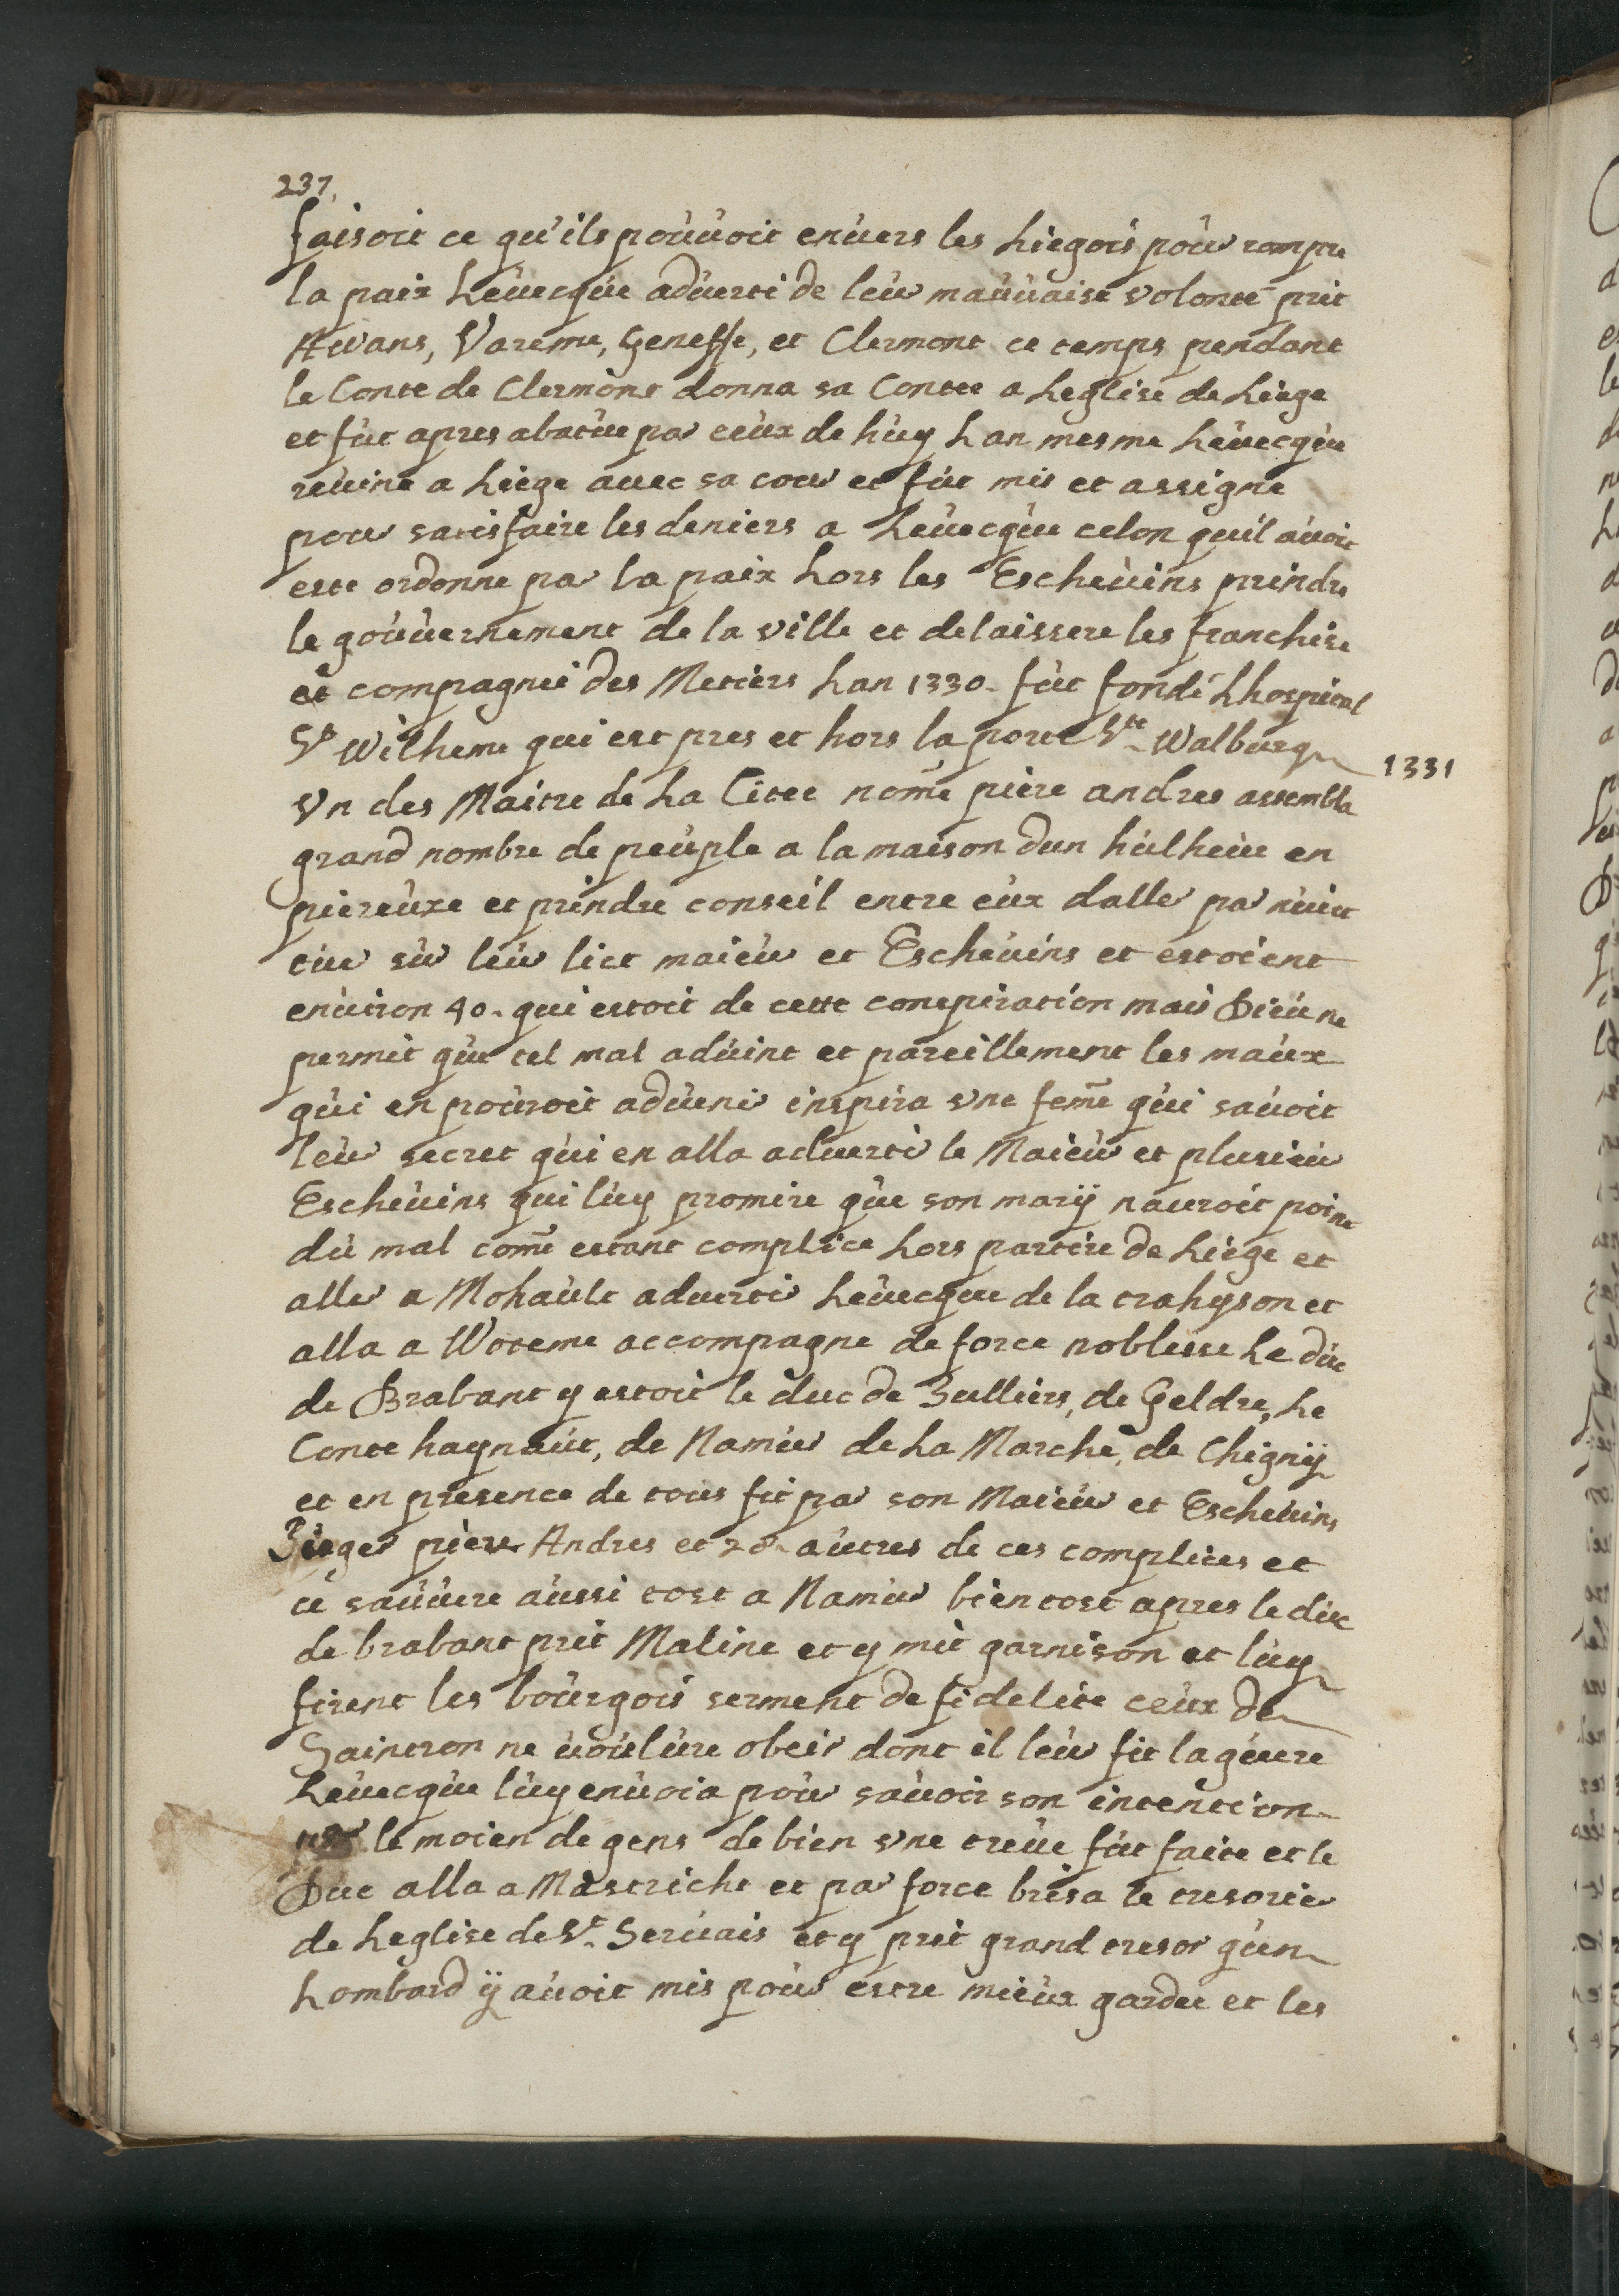 237.
faisoit ce qu'ils pouuoit enuers les Liegois pour rompre
la paix Leuecque aduerti de leur mauuaise volonte prit
Awans, Vareme, Geneffe, et Clermont ce temps pendant
le Conte de Clermont donna sa Contee a Leglise de Liege
et fut apres abatue par ceux de huy Lan mesme Leuecque
reuint a Liege auec sa cour et fut mis et assigne
pour satisfaire les deniers a Leuecque celon quil auoit
este ordonne par la paix Lors les Escheuins prindre
le gouuernement de la ville et delaissere les franchise
et compagnie des Metiers Lan 1330. fut fondé Lhospital
St Wilheme qui est pres et hors la porte Ste Walburge
1331
Vn des Maitre de La Citee nome piere andres assembla
grand nombre de peuple a la maison dun hulheur en
piereuxe et prindre conseil entre eux daller par nuict
tuer sur leur lict maieur et Escheuins et estoient
enuiron 40. qui estoit de cette conspiration mais Dieu ne
permit que tel mal aduint et pareillement les maux
qui en pouroit aduenir inspira vne feme qui sauoit
leur secret qui en alla aduertir le Maieur et plusieur
Escheuins qui luy promire que son marÿ nauroit point
du mal come estant complice Lors partire de Liege et
aller a Mohault aduertir Leuecque de la trahyson et
alla a Woteme accompagne de force noblesse Le duc
de Brabant y estoit le duc de Julliers, de Geldre, Le
Conte haynaut, de Namur de La Marche, de Chignÿ
et en presence de tous fit par son Maieur et Escheuins
Juger piere Andres et 28. autres de ces complices et
ce sauuere aussi tost a Namur bien tost apres le duc
de brabant prit Maline et y mit garnison et luy
firent les bourgois serment de fidelite ceux de
Saintron ne uoulure obeir dont il leur fit la guere
Leuecque luy enuoia pour sauoir son intention
par le moien de gens de bien vne treue fut faite et le
Duc alla a Mastricht et par force brisa le tresorie
de Leglise de St. Seruais et y prit grand tresor qun
Lombard ÿ auoit mis pour estre mieux gardee et les